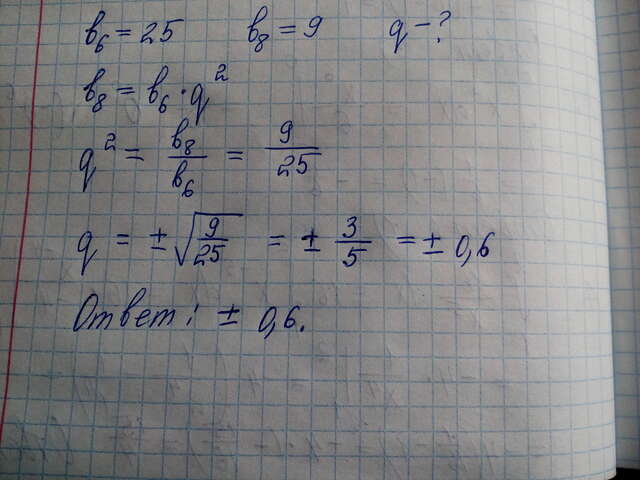 в₆ = 25 в₈ = 9 q – ?
в₈ = в₆ · q²
q² = в₈/в₆ = 9/25
q = ± √(9/25) = ± 3/5 = ± 0,6
Ответ: ± 0,6.